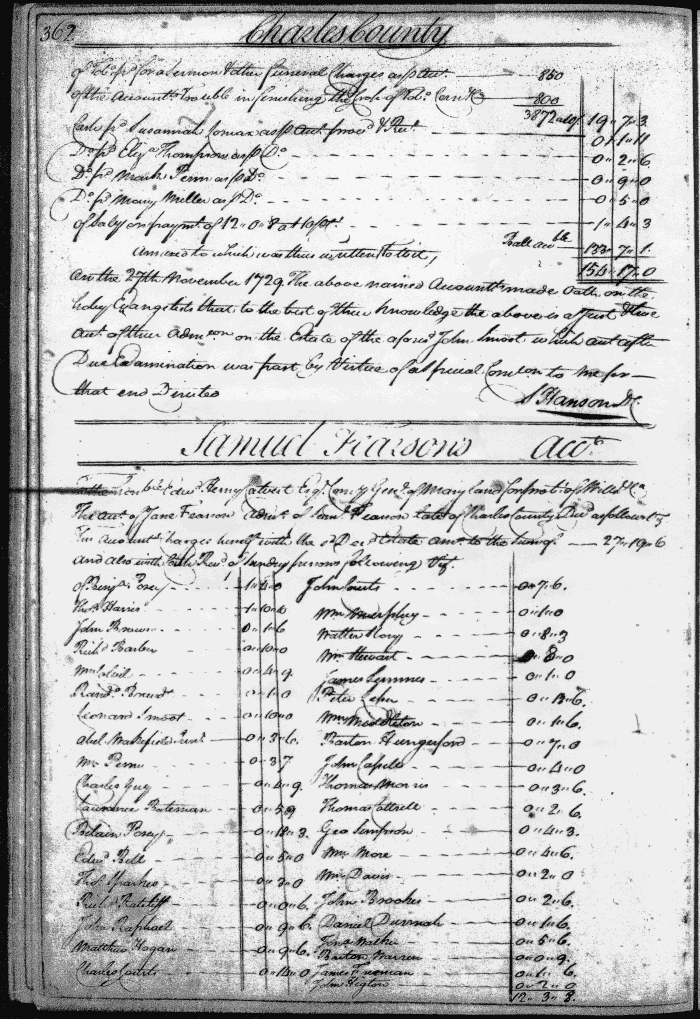 362
Charles County
of Tobo pd for a Sermon & other funeral Charges as p Act. 850
of the Accountts Trouble in finishing the Crop of Tobo Corn &c 800
3872 19 " 7 " 3
Cash pd Susannah Lomax as p Act provd & Rect 0 " 1 " 11
Do pd Eliza Thompson as p Do 0 " 2 " 6
Do pd Mark Penn as p Do 0 " 9 " 0
Do pd Mary Miller as p Do 0 " 5 " 0
of Salry on paymt of 12 " 0 " 8 at 10 p Ct. 1 " 4 " 3
Ball accble 133 " 7 " 1
Annexed to which was thus written to wit,
154 " 17 " 0
On the 27th November 1729 The above named Accountts made Oath on the
holy Evangelists that to the best of their knowledge the above is a Just & true
Act of their Admon on the Estate of the aforesd John Smoot which act after
Due Examination was past by Virtue of a Special Comcon to me for
that end Directed
S Hanson
Samuel Fearsons Acct
Edwd Henry Calvert Esqr Comry Genl of Maryland for probt of Wills &ca
The Act of Jane Fearson Admx of Saml Fearson late of Charles County Decd as followeth
This Accountt Charges herself with the sd Decds Estate amt to the sum of 27 " 19 " 6
And also with Recd of sundry persons following Viz
of Benja Posey 1 " 4 " 0 John Courts 0 " 7 " 6
Thos Harris 1 " 10 " 0 Wm Murphey 0 " 1 " 0
John Brown 0 " 1 " 6 Walter Story 0 " 8 " 3
Richd Barber 0 " 10 " 0 Wm Stewart 0 " 8 " 0
0 " 4 " 9 James Semmes 0 " 1 " 0
Rando Brandt 0 " 1 " 0 Peter
Leonard Smoot 0 " 10 " 0 Wm Middleton 0 " 1 " 6
Abel Wakefield Junr 0 " 3 " 6 Barton Hungerford 0 " 7 " 0
Mr Penn 0 " 3 7 John 0 " 4 " 0
Charles Guy 0 " 4 " 9 Thomas Morris 0 " 3 " 6
Laurance Bateman 0 " 5 9 Thomas Cottrell 0 " 2 " 6
Posey 0 " 12 " 3 Geo Simpson 0 " 4 " 3
Edwd Bell 0 " 5 " 0 Mr More 0 " 4 " 6
Thos Sparkes 0 " 3 " 0 Wm Davis 0 " 2 " 0
Richd Ratcliff 0 " 0 " 6 John Brookes 0 " 2 " 6
John Raphael 0 " 9 " 6 Daniel 0 " 1 " 6
Matthew Hagan 0 " 9 " 6 Walker 0 " 5 " 6
Barton Warren 0 " 0 " 9
Charles 0 " 10 " 0 James Freeman 0 " 1 " 6
John Higton 0 " 2 " 0
12 " 3 " 8